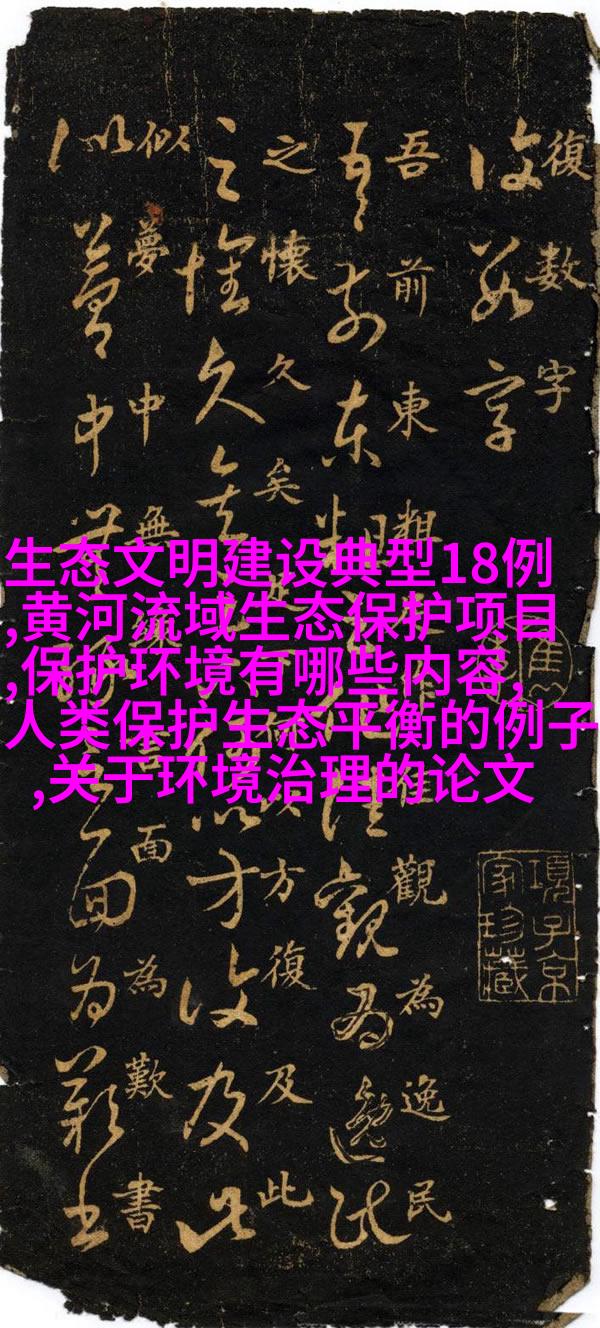 復数字
吾前東粗足作佳觀為逸民
之懷久矣足下何以方復及此
似夢中無緣言面為歎書
項子京
家珍藏
生态文明建设典型18例
,黄河流域生态保护项目
,保护环境有哪些内容,
人类保护生态平衡的例子
,关于环境治理的论文